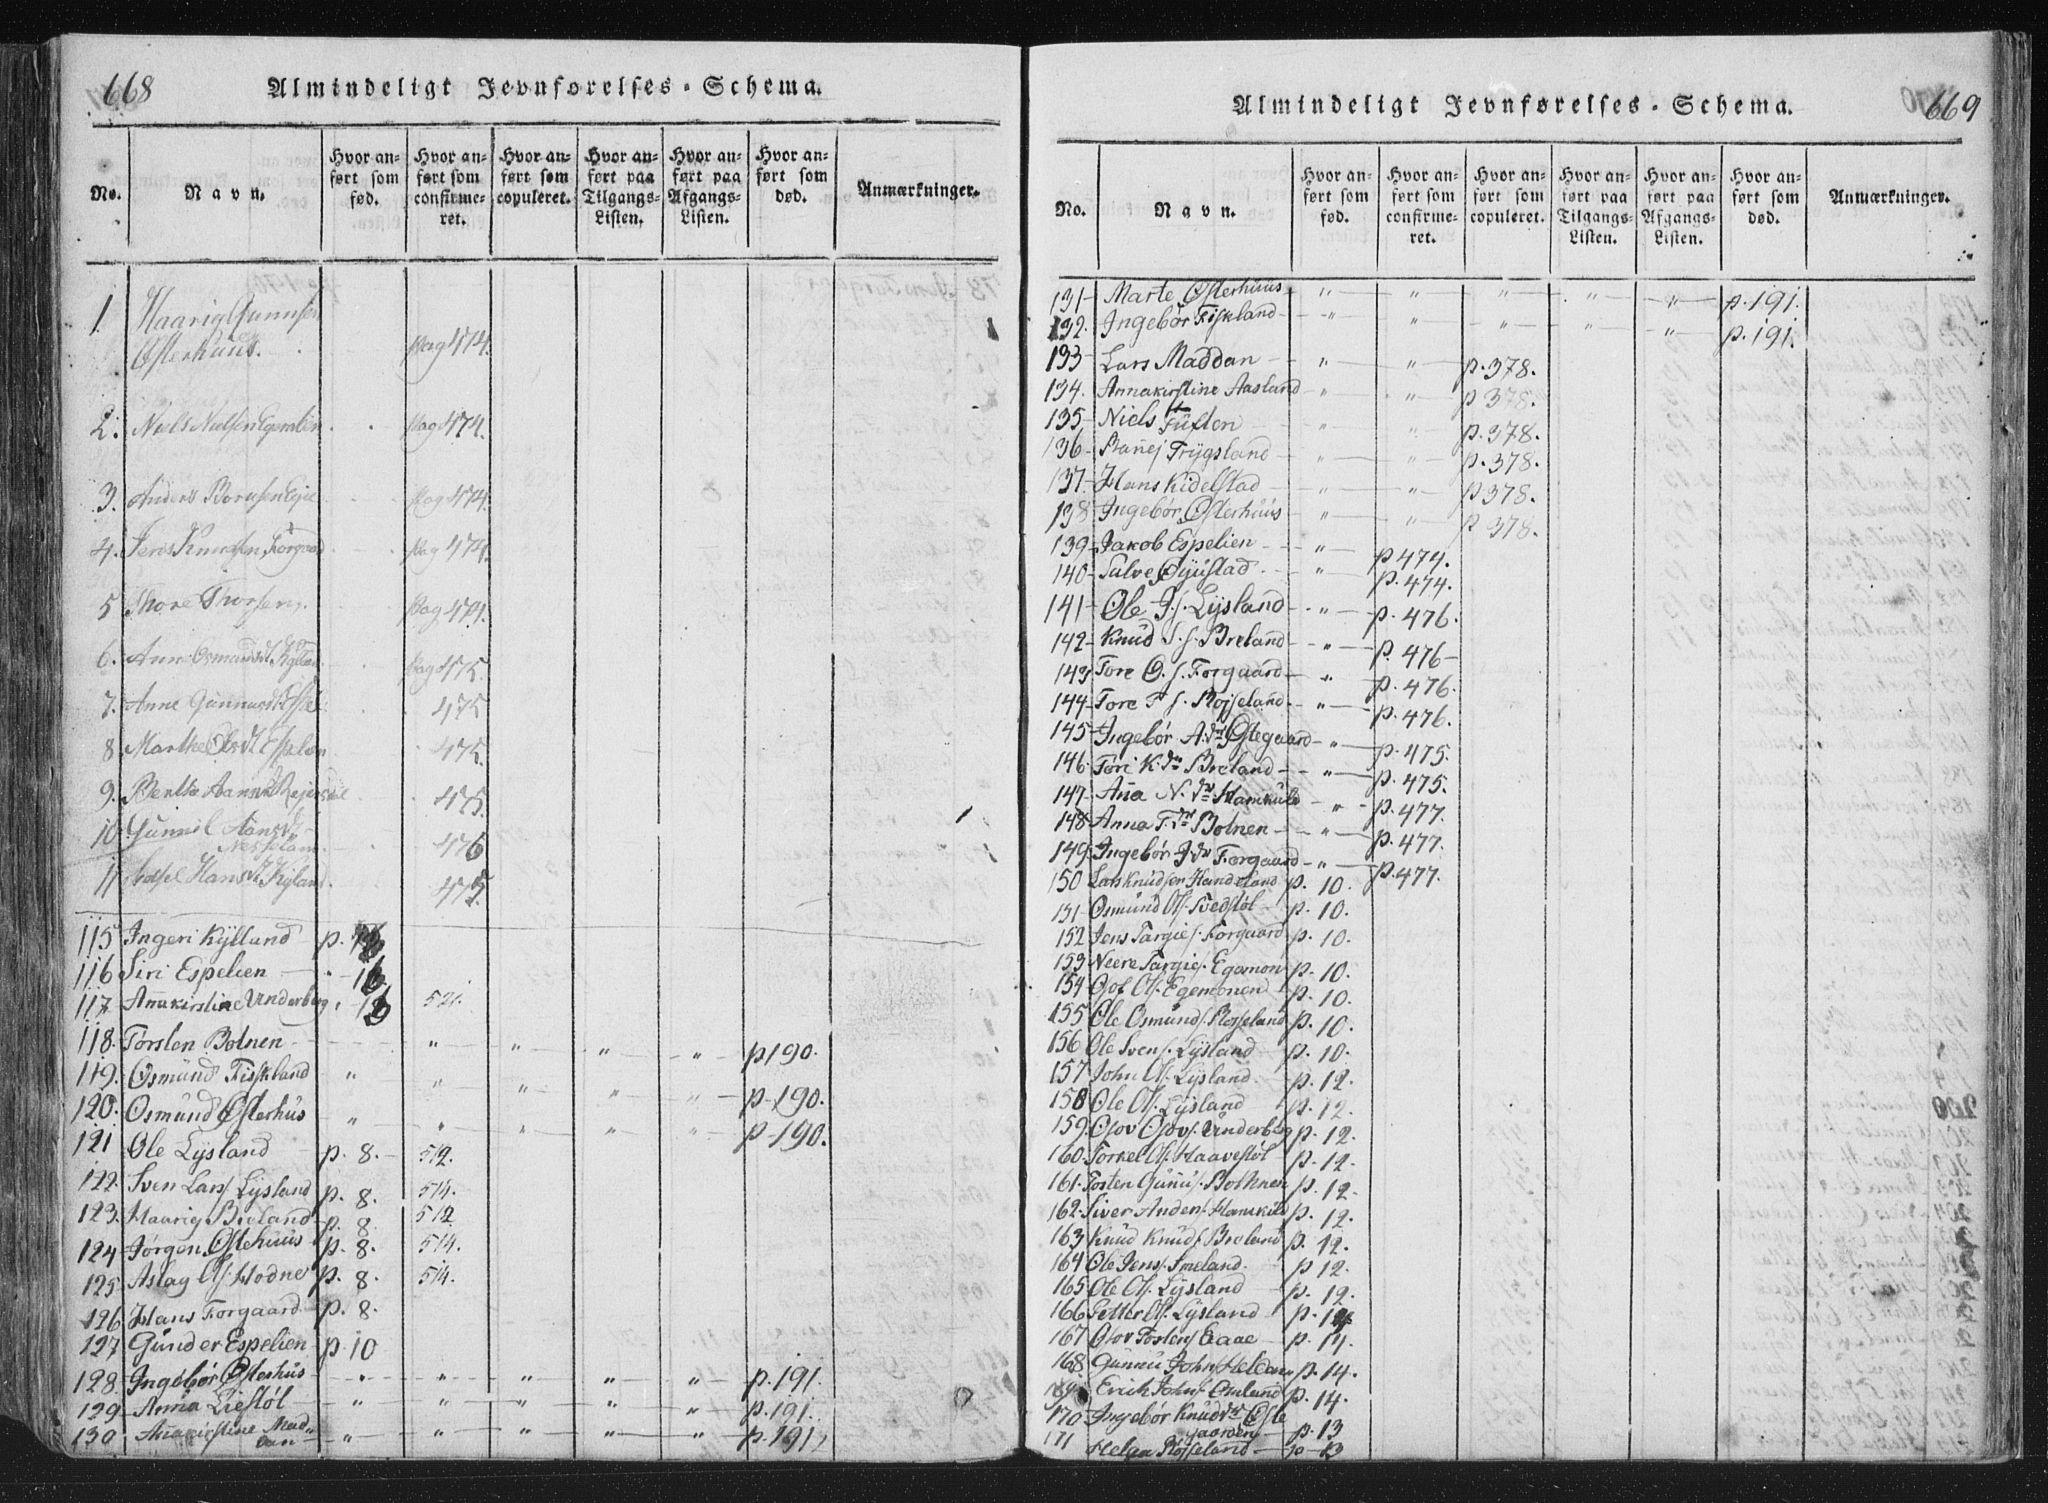 668
Almindeligt Jevnførelses-Schema.
No. Navn. Hvor anført som fød. Hvor anført som confirmeret. Hvor anført som copuleret. Hvor anført paa Tilgangs-Listen. Hvor anført paa Afgangs-Listen. Hvor anført som død. Anmærkninger.
1. Haarig Gunnsen
Østerhuus. Pag 474.
2. Niels Nielsen Pag 474.
3. Anders Pag 474.
4. Jens Knudsen Forgaad Pag 474.
5 Thore Thorsen Pag 474.
6. Anne Osmundsdt Pag 475.
7. Anne 475
8 Marthe Olsdt 475.
9. Berthe 475.
10 Gunnil 476
11 Hansdt Kyland 475.
115 Ingeri Kylland p.
116 Siri Espelien
117 Annakirstine Underberg 521.
118. Torsten Botnen - " - " - " - " - p 190.
119. Osmund Fiskland " - " - " - " - " p-190.
120. Osmund Østerhus " - " - " - " - " p-190.
121 Ole Lysland p. 8. 512.
122. Sven Lars/. Lysland p. 8. 514.
123. Haarig Breland p. 8. 512
124 Jørgen Østehuus p. 8. 514.
125. Aslag Ol/. Hodne p. 8. 514.
126 Hans Forgaard p. 8.
127 Gunder Espelien p. 10
128. Ingebør Østerhus - " - " - " - " - " p. 191.
129 Anna Liestøl " - " - " - " - " p. 191.
130 Annakirstine Mad=
dan - " - " - " - " - " p. 191
Almindeligt Jevnførelses-Schema.
669
No. Navn. Hvor anført som fød. Hvor anført som confirmeret. Hvor anført som copuleret. Hvor anført paa Tilgangs-Listen. Hvor anført paa Afgangs-Listen. Hvor anført som død. Anmærkninger.
131 - Marte Østerhuus - " - " - " - " - " - p. 191.
132. Ingebør Fiskland - " - " - " - " - " - p. 191.
133 - Lars Maddan - " - " - p. 378.
134. Annakirstine Aasland " - " - p 378.
135 - Niels Tuften " - " - p. 378.
136 - Trygsland - " - " - p. 378.
137. - Hans Kidelstad - " - " - p 378.
138 - Ingebør Østerhuus - " - " p 378.
139 - Jakob Espelien - " - p. 474.
140 - Salve Øyustad - " - p. 474.
141 - Ole J/. Lysland - " - p. 476.
142 - Knud S./. Breland - " - p. 476 -
143 Tore O./. Forgaard - " p. 476.
144 - Tore P./. Rosseland - " - p. 476.
145 - Ingebør A.dtr Østegaard - " - p. 475.
146. Tøri K.dtr Breland - " - p. 475.
147 - Anna N.dtr Hamkild - " - p. 477.
148 Anna T.dtr Botnen - " - p. 477.
149 Ingebør J.dtr Forgaard - " - p. 477.
150 Lars Knudsen Handeland p. 10.
151 - Osmund Ol/. Svedstøl - p. 10.
152 Jens Targie/. Forgaard p. 10.
153 Neere Targie/. Egemon p. 10.
154 Ol/. Egemonen p. 10.
155 Ole Osmund/. Rosseland p. 10.
156 Ole Sven/. Lysland p. 10.
157 John Ol/. Lysland p. 12.
158 Ole Ol/. Lysland p. 12.
159 Olov Olov/. Underberg p. 12.
160. Torkel Ol/. Haavestøl p. 12.
161. Tosten Gunnu/. Bothnen p. 12.
162. Siver Anden/. Hamkild p. 12.
163 Knud Knud/. Breland p. 12.
164 Ole Jens/. Smeland p 12.
165 Ole Ol/. Lysland p. 12.
166 Petter Ol/. Lysland p. 14
167 Olov Tosten/. Eaae p. 14.
168. Gunnu John/. p. 14.
169 Erich John/. Omland p. 14.
170 Ingebør Knudsdtr Øste
gaarden p. 13
171 Helga Rosseland p 13